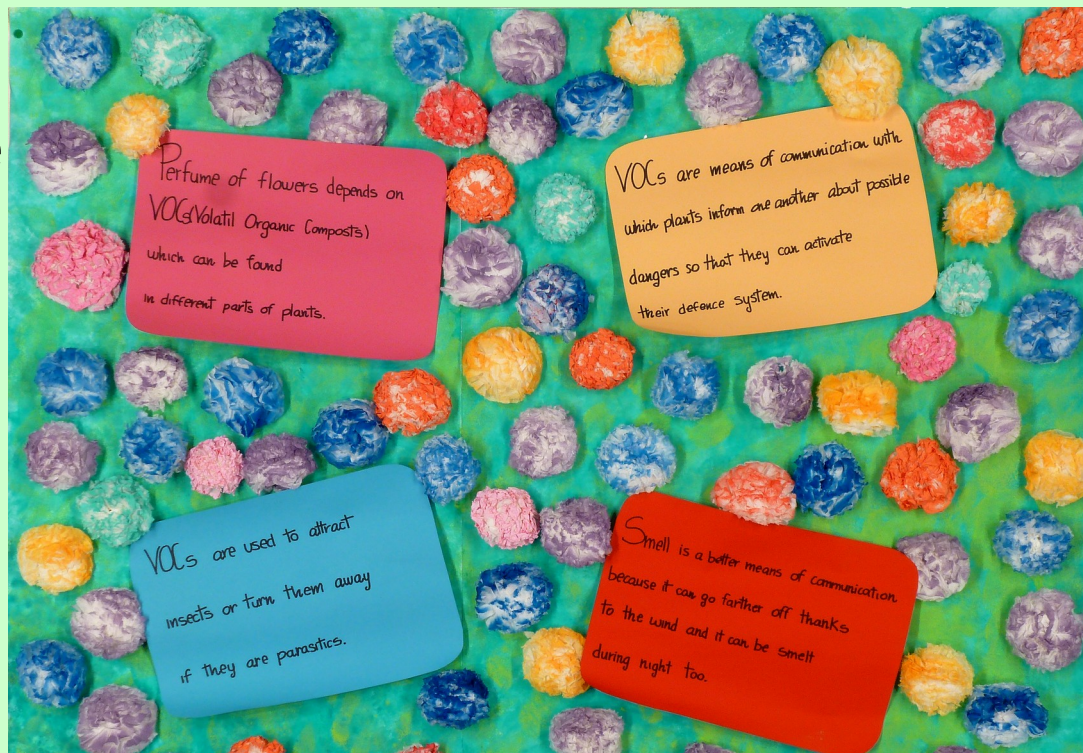 Perfume of flowers depends on
VOCs(Volatil Organic Composts)
which can be found
in different parts of plants.
VOCs are means of communication with
which plants inform one another about possible
dangers so that they can activate
their defence system.
VOCs are used to attract
insects or turn them away
if they are parasitics.
Smell is a better means of communication
because it can go farther off thanks
to the wind and it can be smelt
during night too.